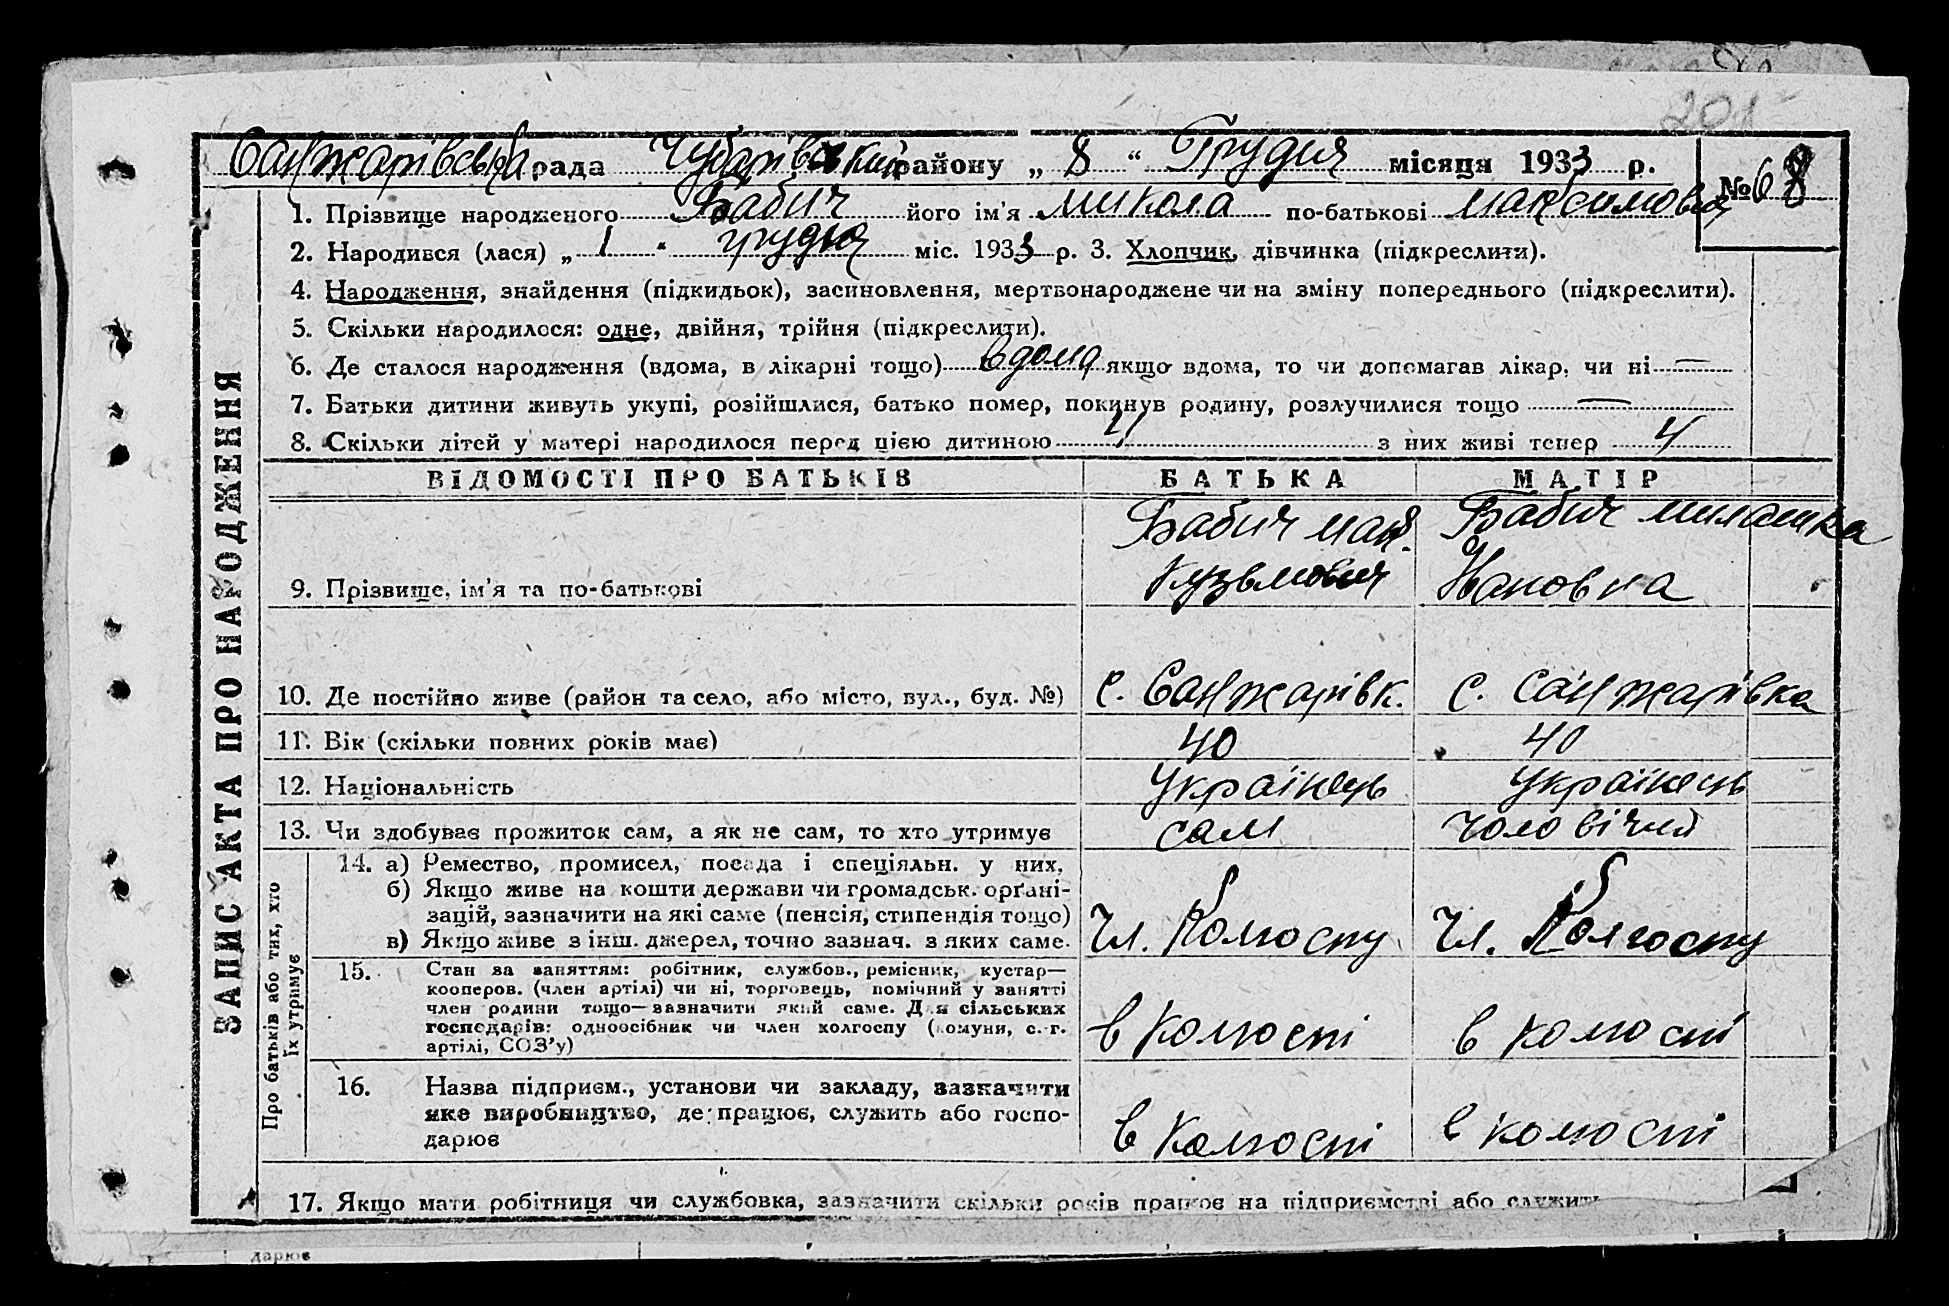 201
Санжарівська рада Чубарівський району „ 8 “ Грудня місяця 1933 р.
№ 68
1. Прізвище народженого Бабич його ім’я Микола по-батькові Максимович
2. Народився (лася) „ 1 “ грудня міс. 1933 р. 3. Хлопчик, дівчинка (підкреслити).
4. Народження, знайдення (підкидьок), засиновлення, мертвонароджене чи на зміну попереднього (підкреслити).
5. Скільки народилося: одне, двійня, трійня (підкреслити).
6. Де сталося народження (вдома, в лікарні тощо) вдома якщо вдома, то чи допомагав лікар, чи ні —
7. Батьки дитини живуть укупі, розійшлися, батько помер, покинув родину, розлучилися тощо —
8. Скільки дітей у матері народилося перед цією дитиною з них живі тепер 4
ЗАПИС АКТА ПРО НАРОДЖЕННЯ
ВІДОМОСТІ ПРО БАТЬКІВ БАТЬКА МАТІР
9. Прізвище, ім’я та по-батькові
Бабич Мак. Кузьмович
Бабич Милашка
10. Де постійно живе (район та село, або місто, вул., буд. №) с. Санжарівк. с. Санжарівка
11. Вік (скільки повних років має) 40 40
12. Національність Українець Українець
13. Чи здобуває прожиток сам, а як не сам, то хто утримує сам чоловічий
Про батьків або тих, хто їх утримує
14. а) Ремество, промисел, посада і спеціяльн. у них.
б) Якщо живе на кошти держави чи громадськ. орґані-
зацій, зазначити на які саме (пенсія, стипендія тощо)
в) Якщо живе з інш. джерел, точно зазнач. з яких саме.
Чл. Колгоспу Чл. Колгоспу
15. Стан за заняттям: робітник, службов., ремісник, кустар—
кооперов. (член артілі) чи ні, торговець, помічний у занятті
член родини тощо—зазначити який саме. Для сільських
господарів: одноосібник чи член колгоспу (комуни, с.-г.
артілі, СОЗ’у)
в колгоспі в колгоспі
16. Назва підприєм., установи чи закладу, зазначити
яке виробництво, де працює, служить або госпо-
дарює
в колгоспі в колгоспі
17. Якщо мати робітниця чи службовка, зазначити скільки років працює на підприємстві або служить
дарює